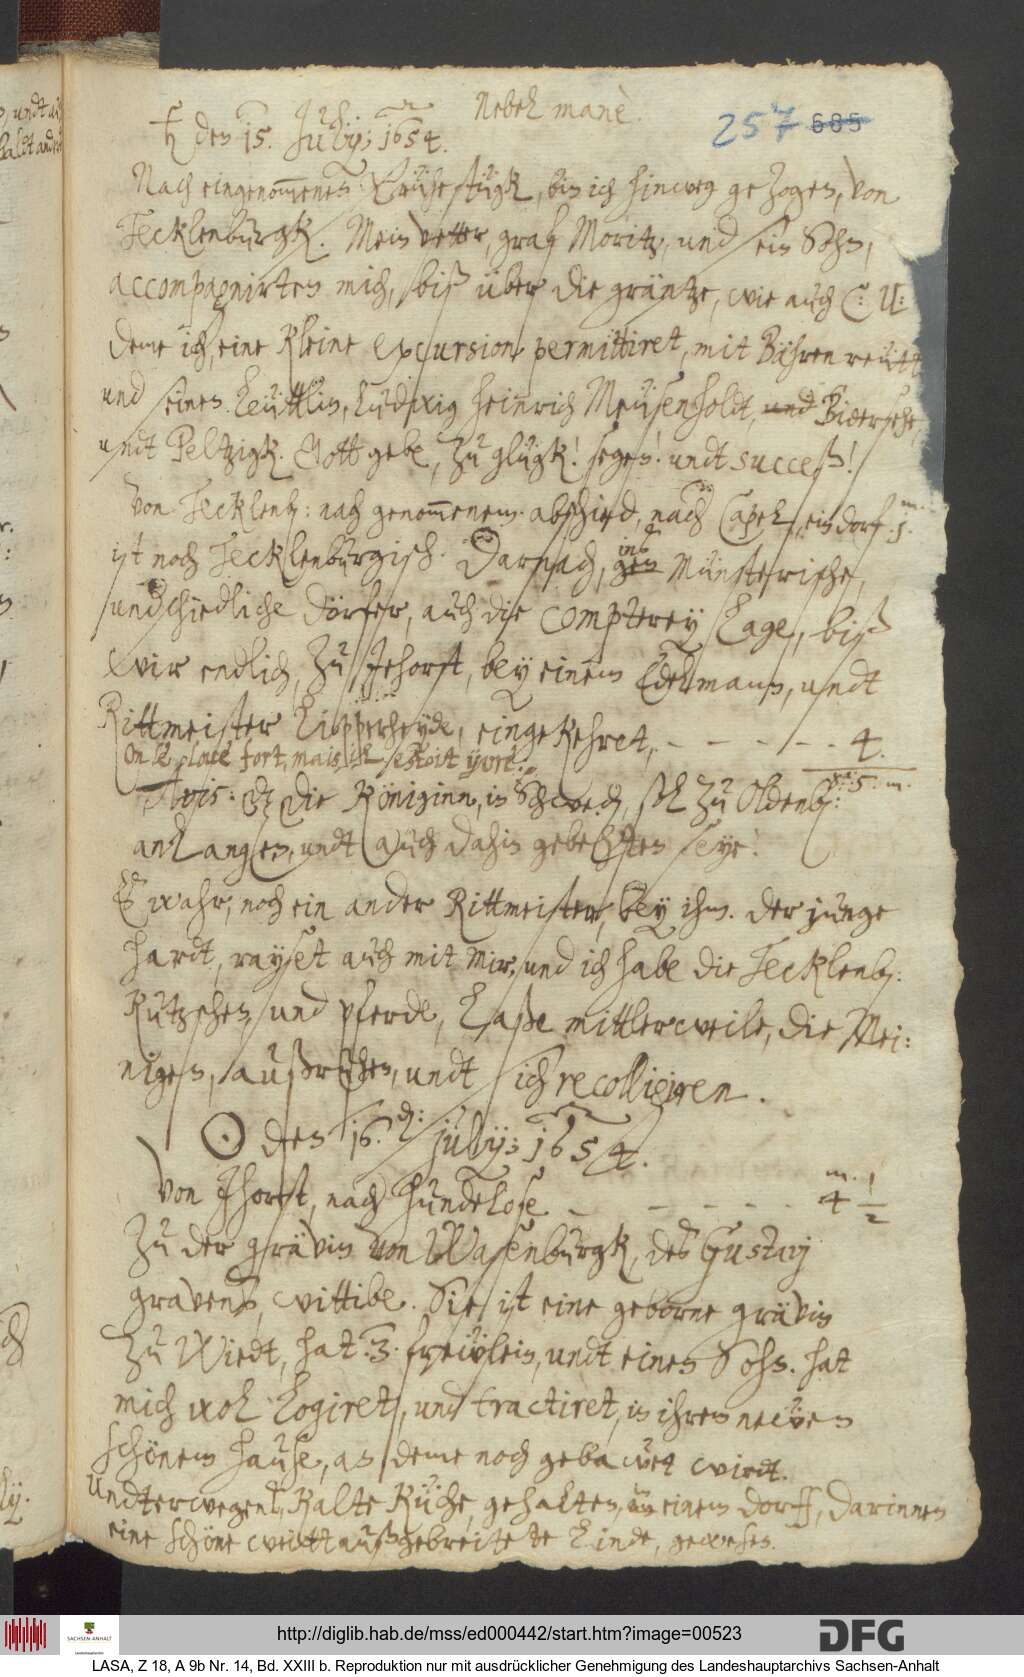 Nebel manè.
257 685
♄ den 15. Julij: 1654.
Nach eingenom̅enen Frühestügk, bin ich hinweg gezogen, von
Tecklenburgk. Mein vetter, graf Moritz, und sein Sohn,
accompagnirten mich, biß über die gräntze, wie auch C: U:
deme ich, eine kleine excursion permittiret, mit Bähren reütt
und seinen Leüttlin, Ludwig Heinrich Meüsenholdt, und Bidersehe,
undt Peltzigk. Gott gebe, zu glügk! segen! undt succeß!
Von Tecklenb: nach genom̅enem abschied, nach Capeln, ein dorf m. 1
ist noch Tecklenburgisch. Darnach, ins gen Münsterische,
undschiedliche dörfer, auch die Compterey Lage, biß
wir endlich, zu Ihorst, bey einem Edelmann, undt
Rittmeister Lipperheyde, eingekehret, - - - - - 4.
On le plouë fort, mais il estoit yvre.
5. m.
Avis: daß die Königinn, in Schwed: sol zu Oldenb:
anlangen, undt auch dahin gebehten seye.
Es wahr, noch ein ander Rittmeister, bey ihm. der junge
hardt, rayset auch mit mir, und ich habe die Tecklenb:
kutzschen, und pferde, laße mittlerweile, die Mei:
nigen, außruhen, undt sich recolligiren.
☉ den 16. d: Julij: 1654.
Von Ihorst, nach Hundelose - - - - - m. 4 1/2
Zu der grävin von Wasenburgk, des Gustavj
gravens, wittibe. Sie ist eine geborne grävin
zu Wiedt, hat 3. freülein, undt einen Sohn. hat
mich wol logiret, und tractiret, in ihrem neüen
schönem hause, an deme noch gebawet wirdt.
Undterwegens, kalte küche, gehalten, in einem dorff, darinnen
eine schöne weitt außgebreitete Linde, gewesen.
SACHSEN-ANHALT
http://diglib.hab.de/mss/ed000442/start.htm?image=00523
DFG
LASA, Z 18, A 9b Nr. 14, Bd. XXIII b. Reproduktion nur mit ausdrücklicher Genehmigung des Landeshauptarchivs Sachsen-Anhalt